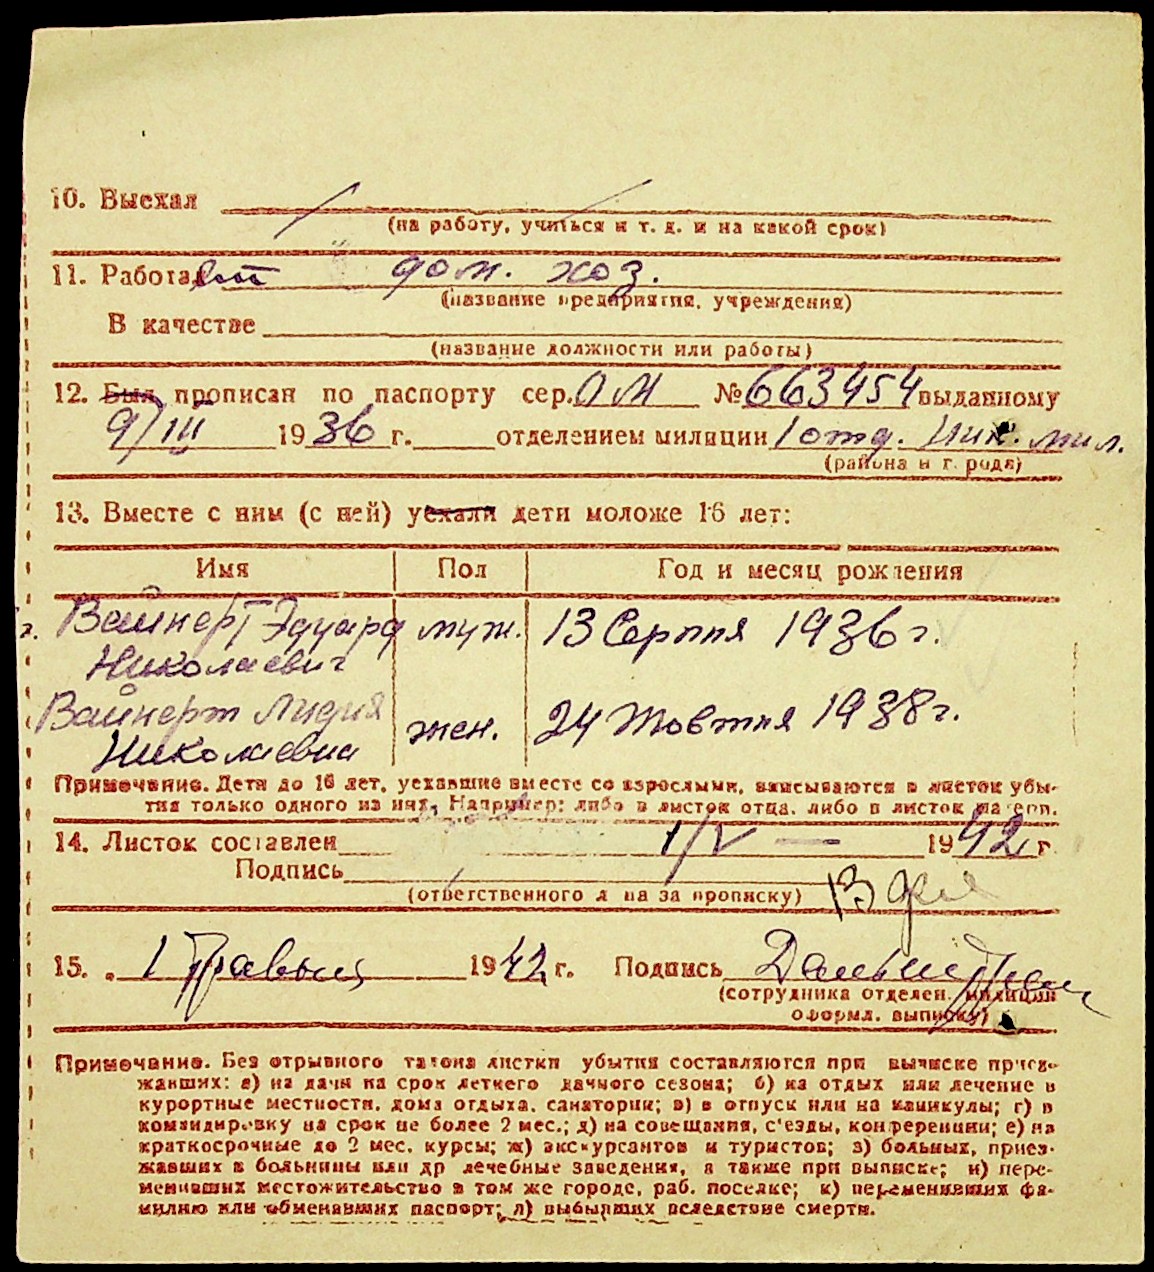 10. Выехал
(на работу, учиться и т. д. и на какой срок)
11. Работает дом. хоз.
(название предприятия, учреждения)
В качестве
(название должности или работы)
12. Был прописан по паспорту сер. ОМ № 663454 выданному
9/III 1936 г. отделением милиции 1 отд. Ник. мил.
(района и города)
13. Вместе с ним (с ней) уехали дети моложе 16 лет:
Имя Пол Год и месяц рождения
Вайнерт Эдуард муж. 13 Серпня 1936 г.
Николаевич
Вайнерт Лидия жен. 24 Жовтня 1938 г.
Николаевна
Примечание. Дети до 16 лет, уехавшие вместе со взрослыми, вписываются в листок убы-
тия только одного из них. Например: либо в листок отца, либо в листок матери.
14. Листок составлен 1/V — 1942 г.
Подпись
(ответственного лица за прописку)
15. 1 Травня 1942 г. Подпись
(сотрудника отделен. милиции
оформл. выписку)
Примечание. Без отрывного талона листки убытия составляются при выписке приез-
жавших: а) на дачи на срок летнего дачного сезона; б) на отдых или лечение в
курортные местности, дома отдыха, санатории; в) в отпуск или на каникулы; г) в
командировку на срок не более 2 мес.; д) на совещания, с'езды, конференции; е) на
краткосрочные до 2 мес. курсы; ж) экскурсантов и туристов; з) больных, приез-
жавших в больницы или др лечебные заведения, а также при выписке; и) пере-
менивших местожительство в том же городе, раб. поселке; к) переменивших фа-
милию или обменавших паспорт; л) выбывших вследствие смерти.